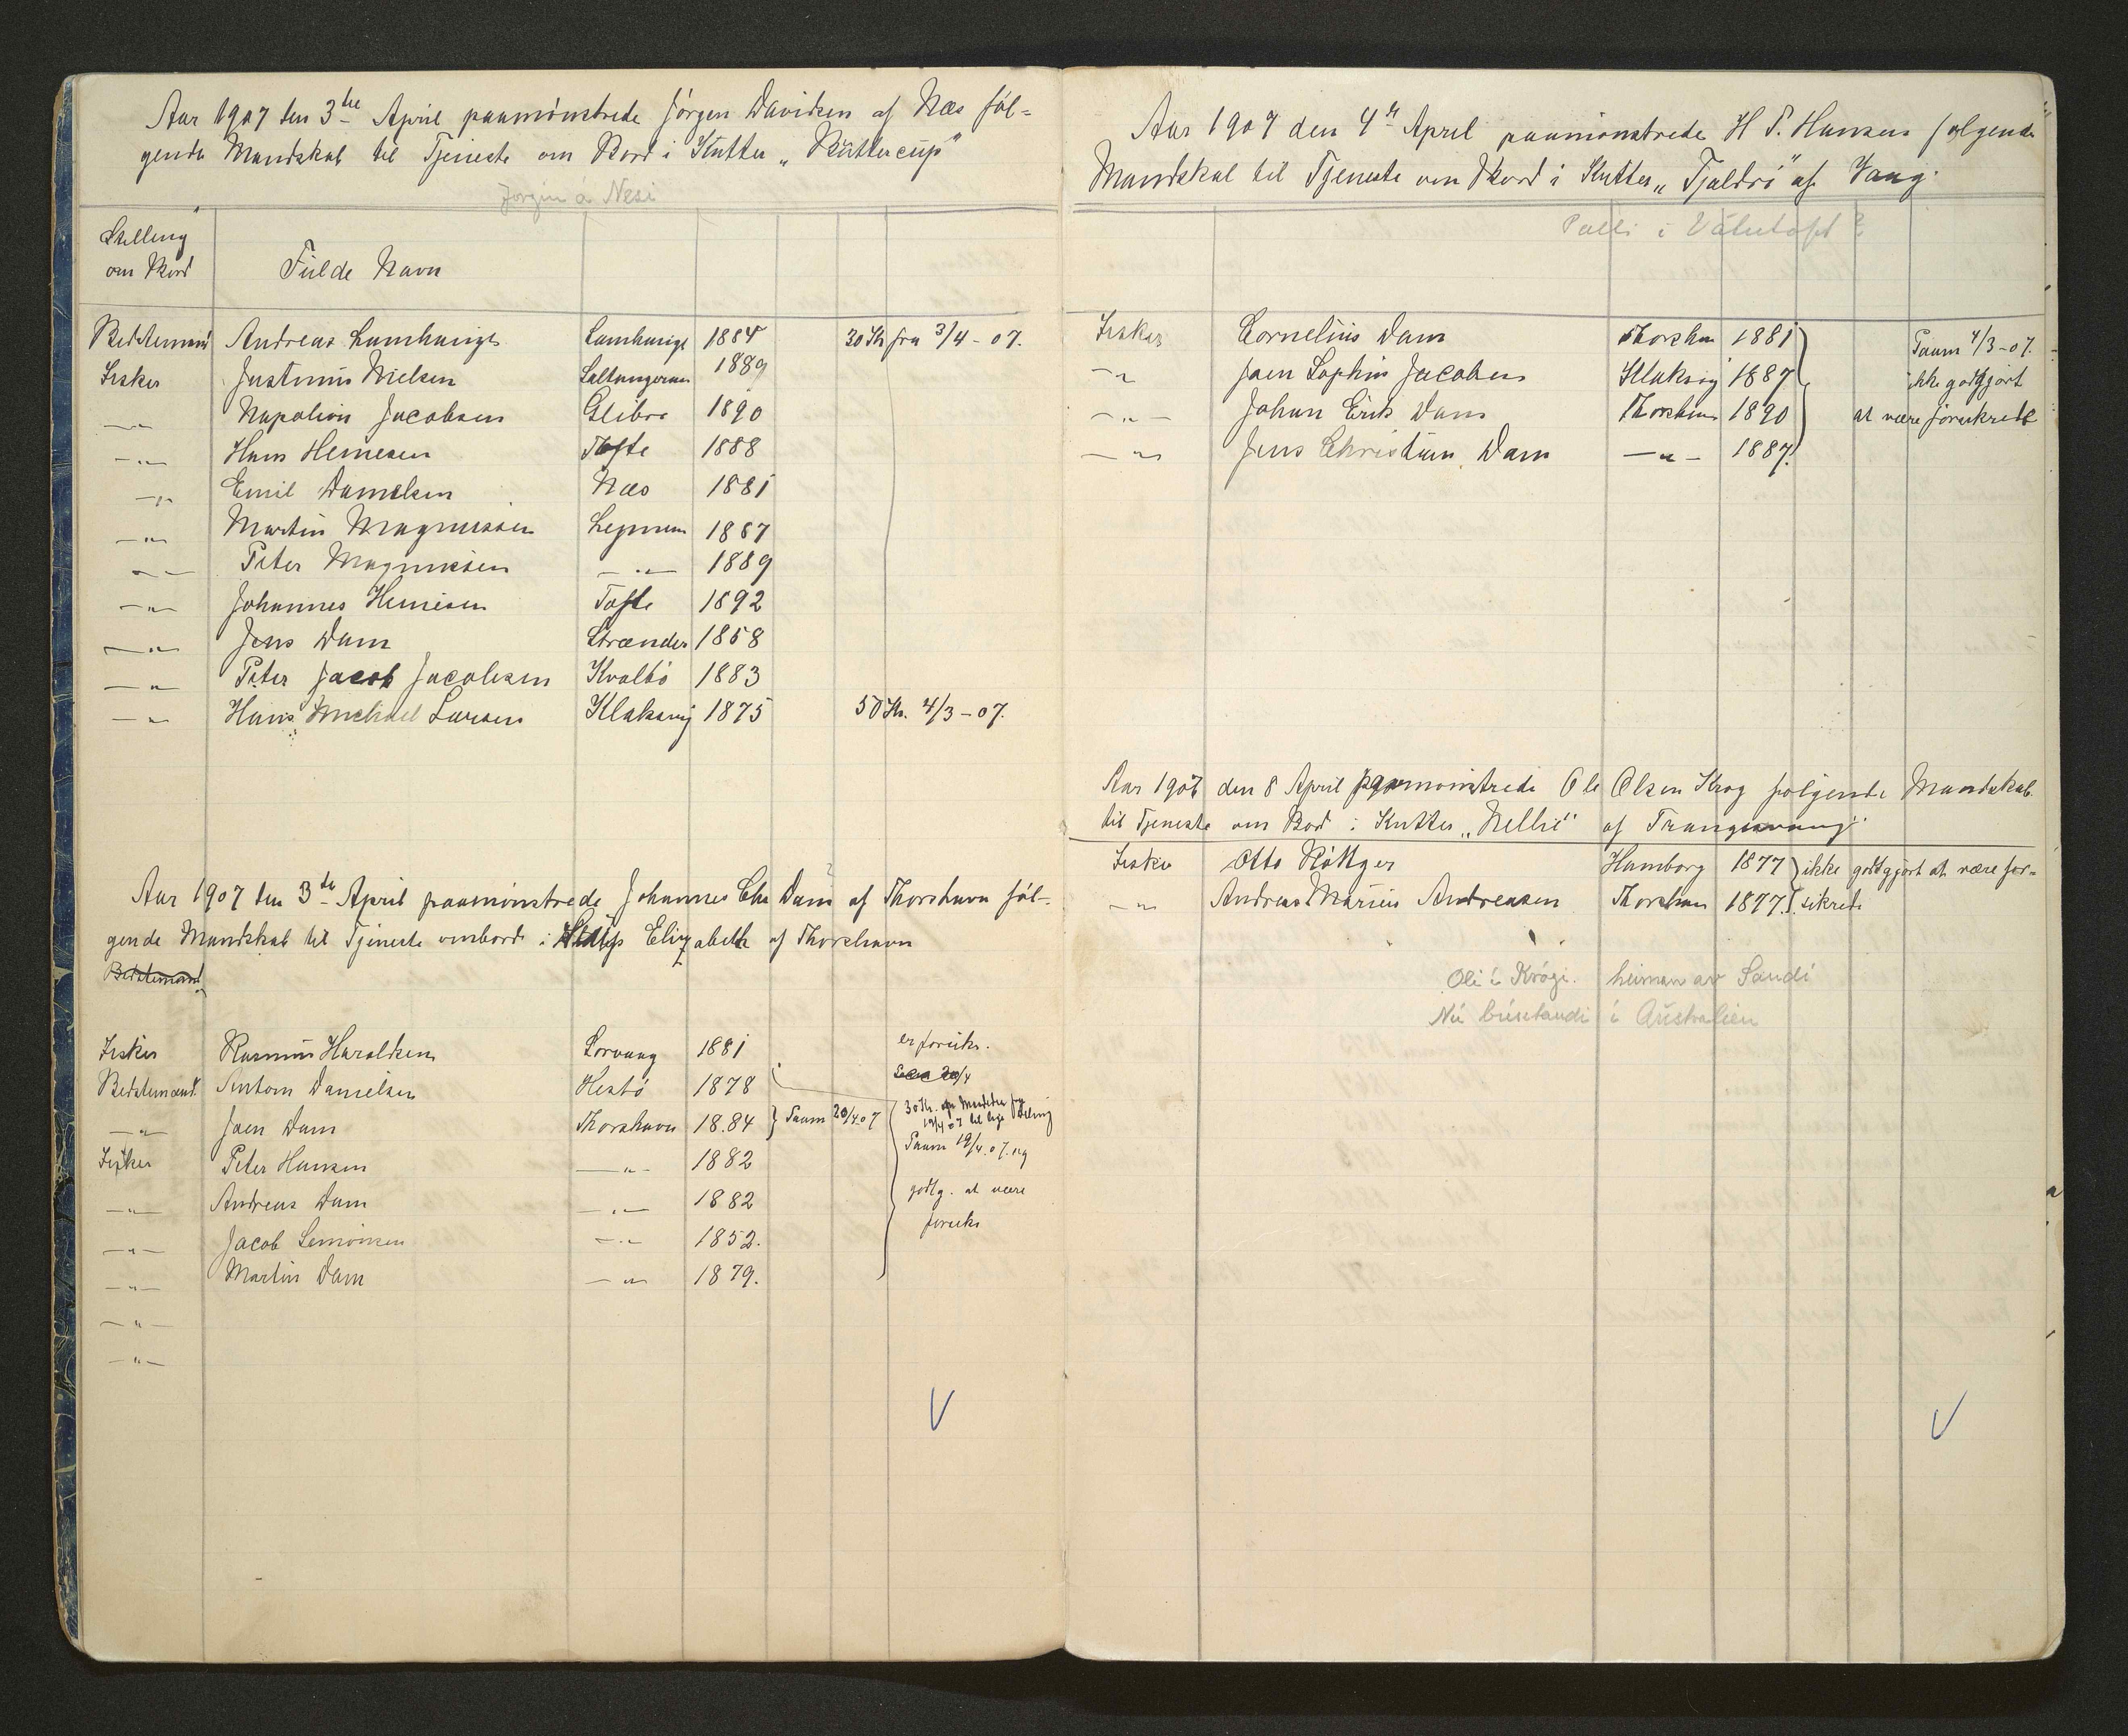 Aar 1907 den 3die April paamönstrede Jörgen Davidsen af Næs föl-
gende Mandskab til Tjeneste om Bord i Kutter „Büttercup"
Jorgin á Nesi
Stilling
om Bord
Fulde Navn
Bedstemand Andreas Lamhauge Lamhauge 1884 30 Kr fra 3/4 - 07.
Fisker Justinus Nielsen Saltangeraa 1889
—"— Napoleon Jacobsen Glibre 1890
—"— Hans Heinesen Tofte 1888
—"— Emil Danielsen Næs 1881
—"— Martin Magnussen Legnum 1887
—"— Peter Magnussen —"— 1889
—"— Johannes Heinesen Tofte 1892
—"— Jens Dam Strænder 1858
—"— Peter Jacob Jacobsen Kvalbö 1883
—"— Hans Michael Larsen Klaksvig 1875 50 Kr. 4/3 - 07.
Aar 1907 den 3die April paamönstrede Johannes Chr Dam af Thorshavn föl-
gende Mandskab til Tjeneste ombord i Slup Elizabeth af Thorshavn
Bedstemand
Fisker Rasmus Haraldsen Sorvaag 1881 er forsikr.
Bedstemand. Antom Danielsen Hestö 1878 20/4
—"— Joen Dam Thorshavn 18.84 } Paam 20/4 07 30 Kr.
19/4 07 til
Fisker Peter Hansen —"— 1882 Paam 19/4. 07. og
—"— Andreas Dam —"— 1882 godtg. at være
—"— Jacob Simonsen —"— 1852. forsikr
—"— Martin Dam —"— 1879.
—"—
—"—
V
Aar 1907 den 4de April paamönstrede H P. Hansen følgende
Mandskab til Tjeneste om Bord i Kutter „Tjaldri" af Vaag.
Palli i Válutoft?
Fisker Cornelius Dam Thorshavn 1881 Paam 4/3 - 07.
—"— Joen Sophus Jacobsen Klaksvig 1887 ikke godtgjort
—"— Johan Erik Dam Thorshavn 1890 at være forsikrede
—"— Jens Christian Dam —"— 1887.
Aar 1907 den 8 April paamönstrede Ole Olsen Krog følgende Mandskab
til Tjeneste om Bord i Kutter „Nellie" af Trangisvaag
Fisker Otto Röttger Hamborg 1877 } ikke godtgjort at være for-
—"— Andreas Marius Andreasen Thorshavn 1877. } sikrede
Oli í Krógi. heiman av Sandi
Nú búsitandi í Australien
V